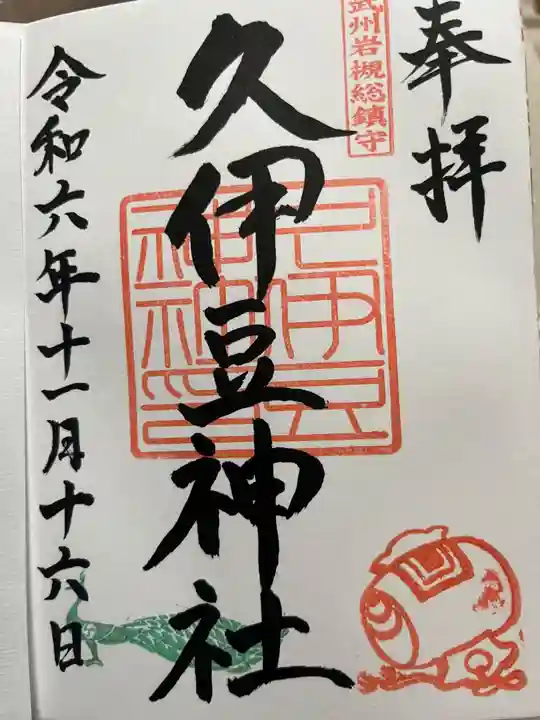 奉拝
武州岩槻総鎮守
久伊豆神社
令和六年十一月十六日